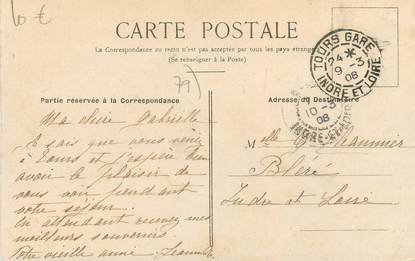 10 €
CARTE POSTALE
La Correspondance au recto n'est pas acceptée par tous les pays étrangers
(Se renseigner à la Poste)
79
TOURS GARE
24 *
9 -3
08
INDRE ET LOIRE
Partie réservée à la Correspondance
Ma chère Gabrielle
Je sais que vous venez
à Tours et j'espère bien
avoir le plaisir de
vous voir pendant
votre séjour.
En attendant recevez mes
meilleurs souvenirs.
Votre vieille amie, Jeanne
Adresse du Destinataire
10 -3
08
INDRE ET LOIRE
Melle G.
Bléré
Indre et Loire